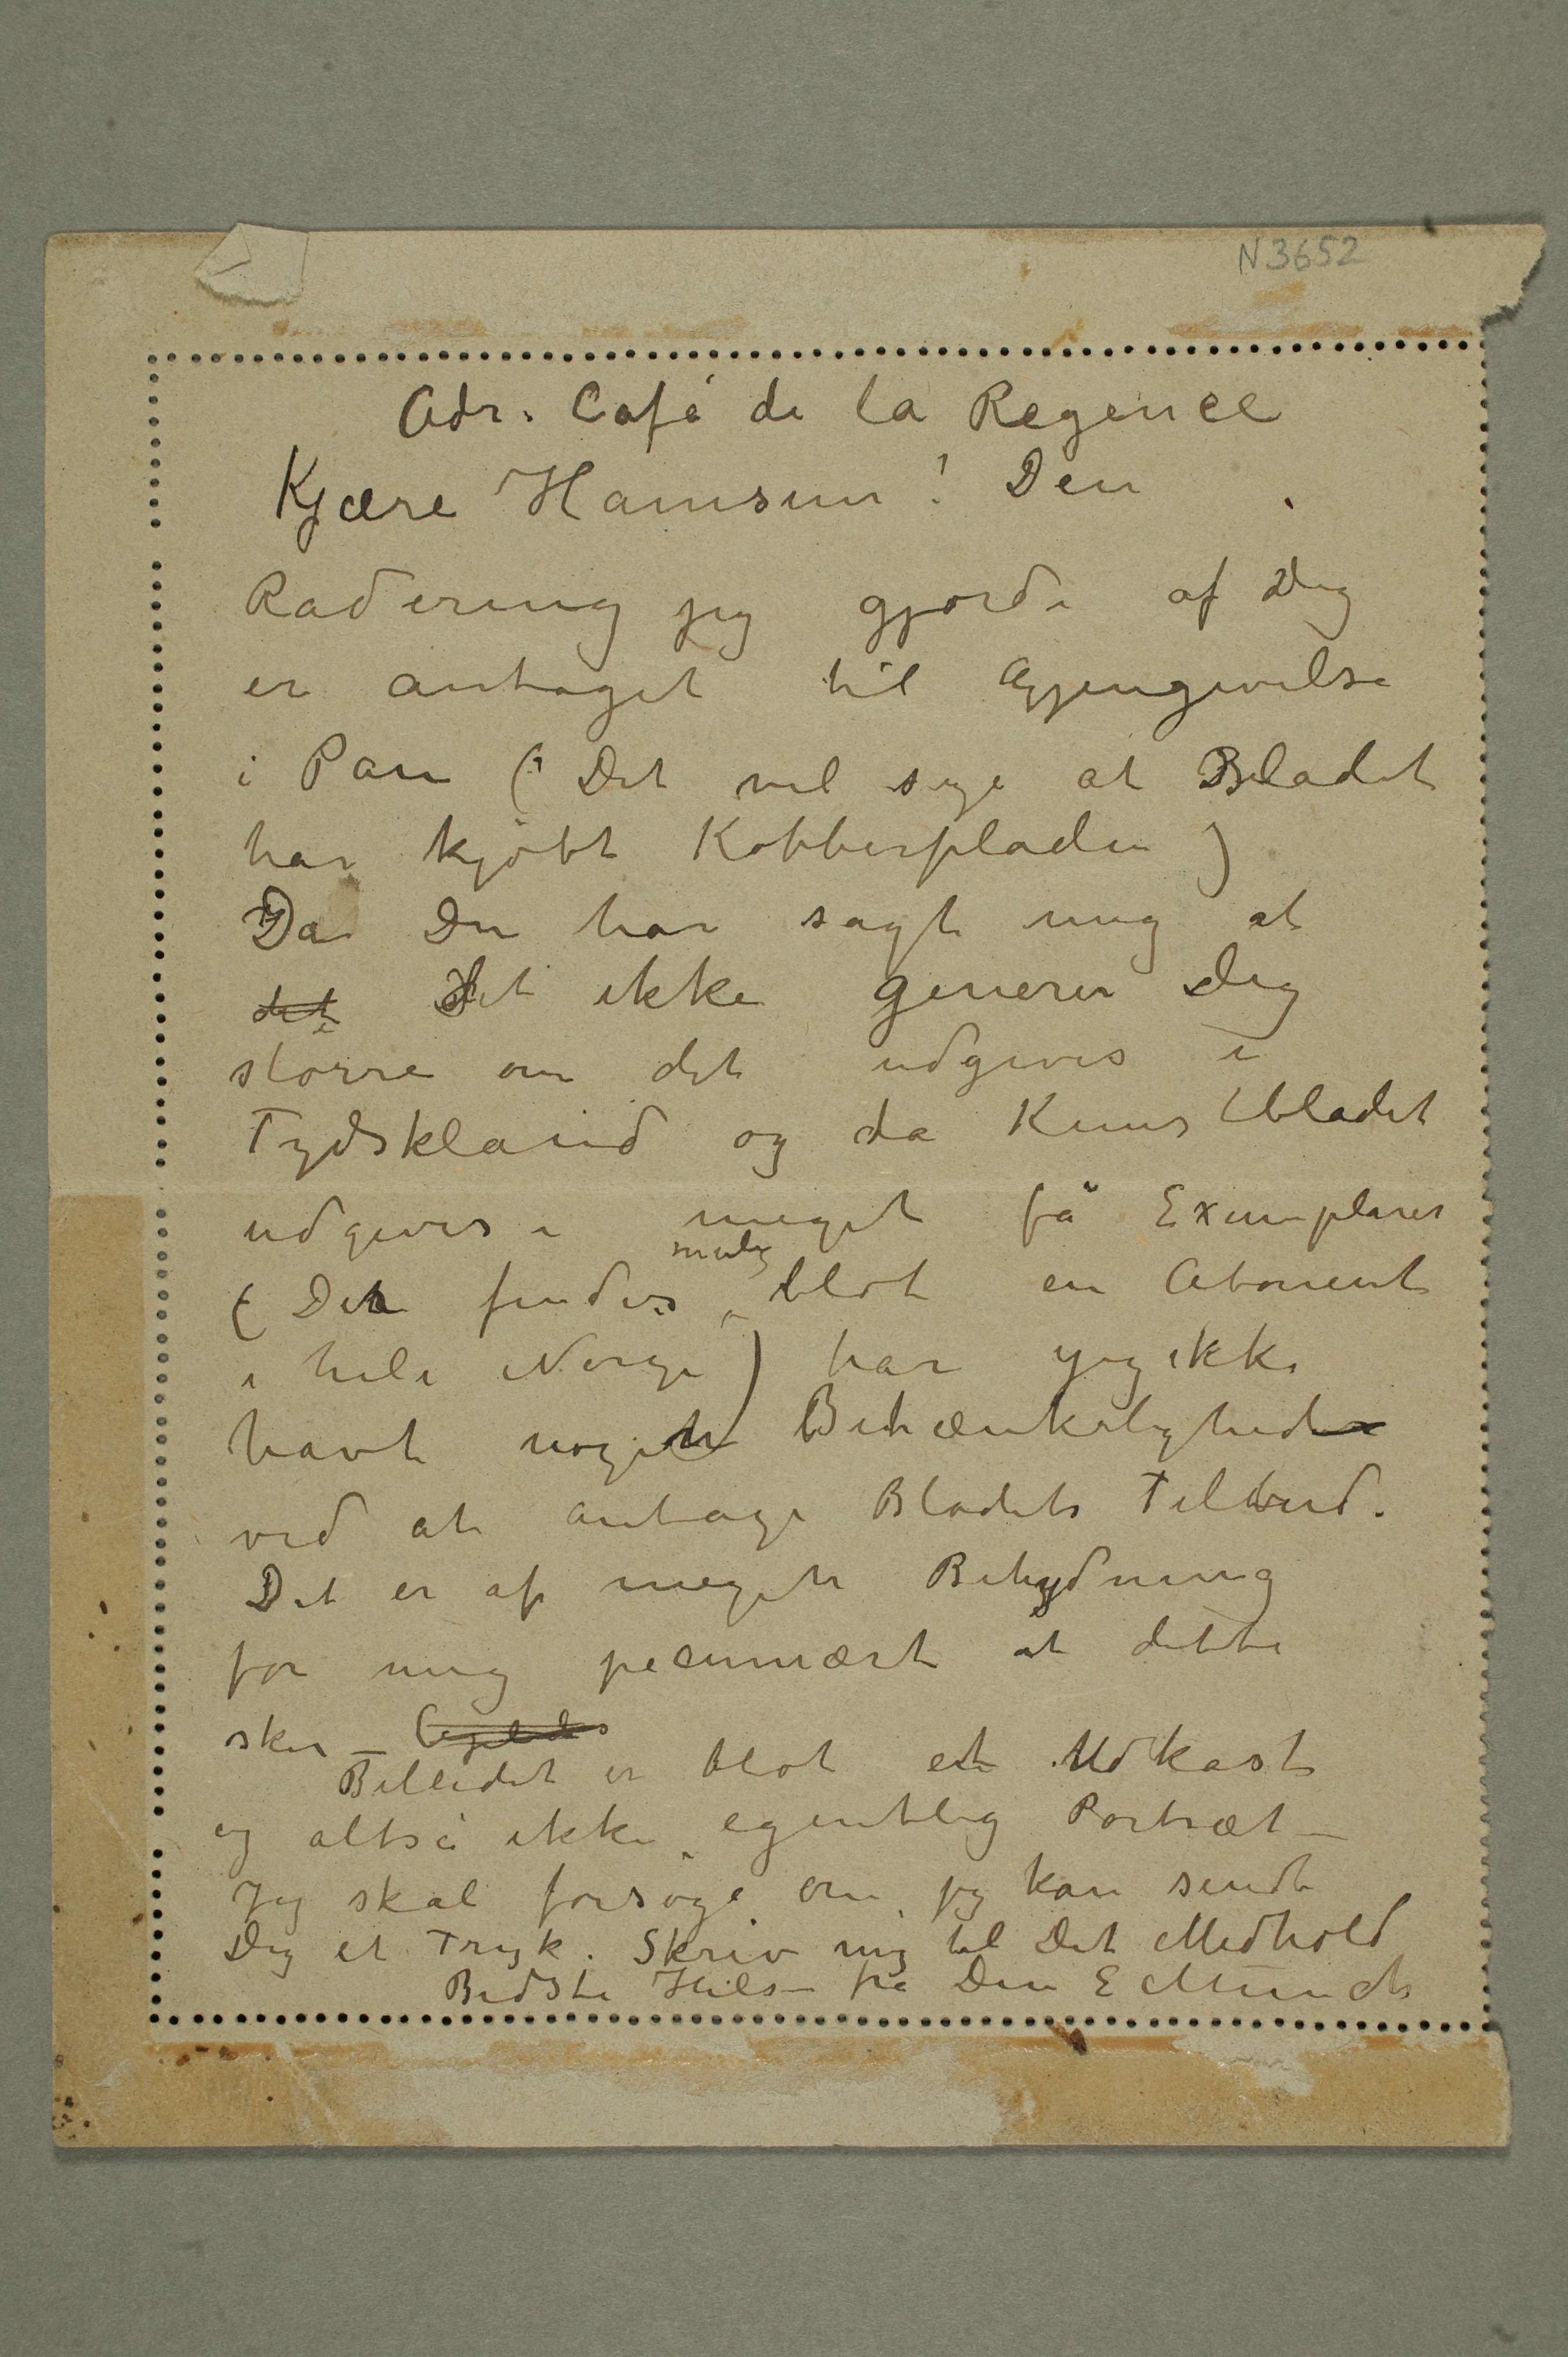 N 3652
Adr. Café de la Regence
Kjære Hamsun! Den
Radering jeg gjorde af Dig
er antaget til Gjengivelse
i Pan (Det vil sige at Bladet
har kjøbt Kobberpladen)
Da Du har sagt mig at
det Det ikke generer Dig
større om det udgives i
Tydskland og da Kunstbladet
udgives i meget få Exemplarer
(Der findes blot en Abonent
i hele Norge) har jeg ikke
havt nogen Betænkelighed
ved at antage Bladets Tilbud.
Det er af meget Betydning
for mig pecuniært at dette
sker –
Billedet er blot et Udkast
og altså ikke egentlig Portræt –
Jeg skal forsøge om jeg kan sende
Dig et Tryk. Skriv mig til Dit Medhold
Bedste Hilsen fra Din E Munch